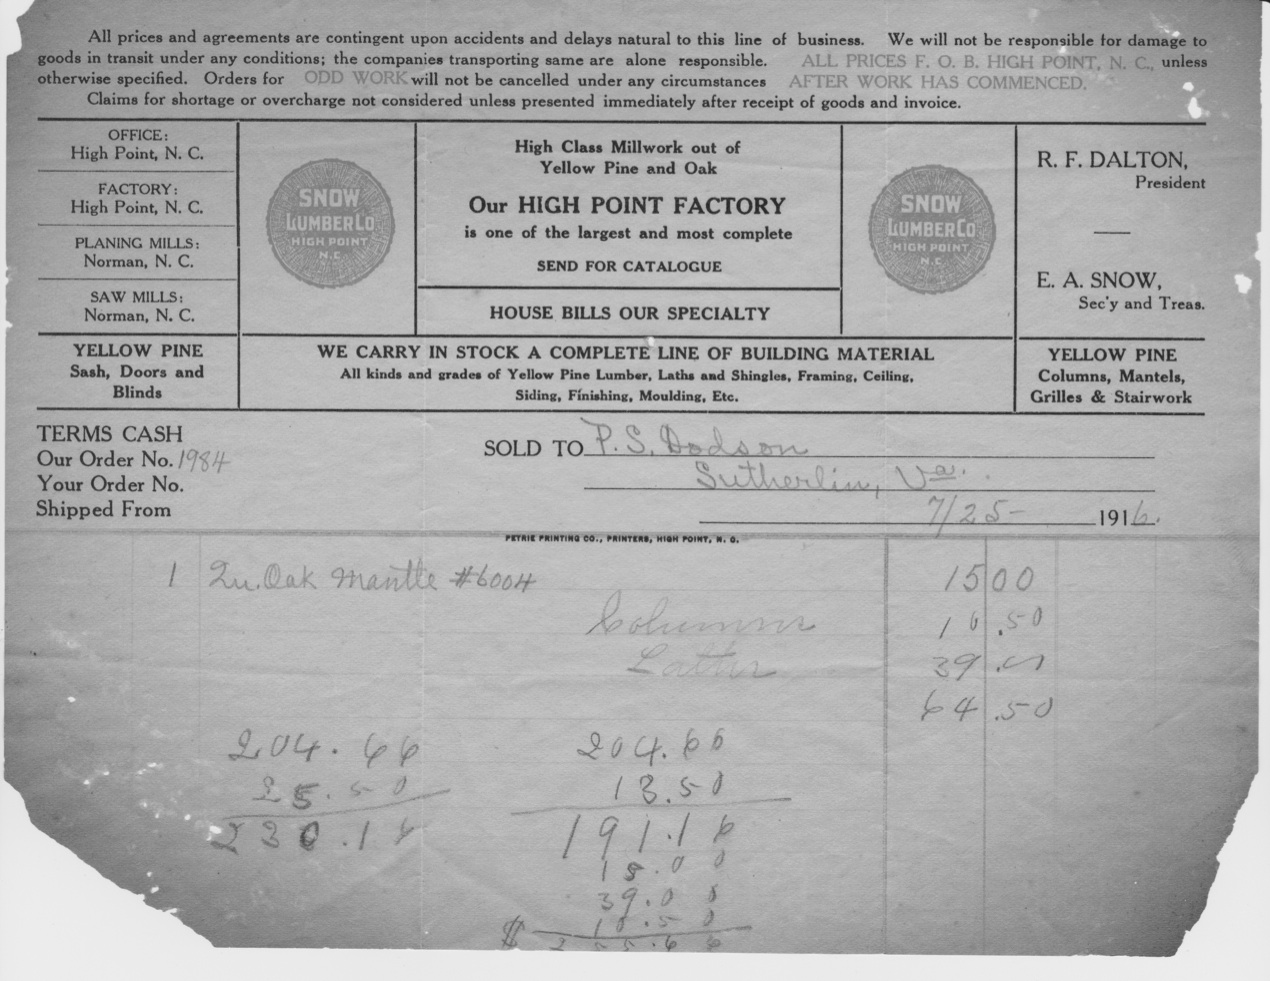 All prices and agreements are contingent upon accidents and delays natural to this line of business. We will not be responsible for damage to
goods in transit under any conditions; the companies transporting same are alone responsible. ALL PRICES F. O. B. HIGH POINT, N. C., unless
otherwise specified. Orders for ODD WORK will not be cancelled under any circumstances AFTER WORK HAS COMMENCED.
Claims for shortage or overcharge not considered unless presented immediately after receipt of goods and invoice.
OFFICE:
High Point, N. C.
FACTORY:
High Point, N. C.
PLANING MILLS:
Norman, N. C.
SAW MILLS:
Norman, N. C.
SNOW
LUMBER CO
HIGH POINT
N.C
High Class Millwork out of
Yellow Pine and Oak
Our HIGH POINT FACTORY
is one of the largest and most complete
SEND FOR CATALOGUE
HOUSE BILLS OUR SPECIALTY
SNOW
LUMBER CO
HIGH POINT
N.C.
R. F. DALTON,
President
E. A. SNOW,
Sec'y and Treas.
YELLOW PINE
Sash, Doors and
Blinds
WE CARRY IN STOCK A COMPLETE LINE OF BUILDING MATERIAL
All kinds and grades of Yellow Pine Lumber, Laths and Shingles, Framing, Ceiling,
Siding, Finishing, Moulding, Etc.
YELLOW PINE
Columns, Mantels,
Grilles & Stairwork
TERMS CASH
Our Order No. 1984
Your Order No.
Shipped From
SOLD TO P. S. Dodson
Sutherlin, Va.
7/25- 1916.
PETRIE PRINTING CO., PRINTERS, HIGH POINT, N. C.
1 Qu. Oak Mantle #6004 15 00
Columns 10.50
39.00
64.50
204.66
25.50
230.16
204.66
13.50
191.16
15.00
39.00
10.50
$ 255.66